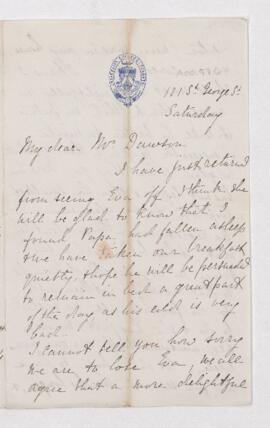 181 St George St
Saturday
My dear Mr Dawson
I have just returned
from seeing Eva off. I think she
will be glad to know that I
found Papa had fallen asleep
& we have taken our breakfast
quietly. I hope he will be persuaded
to remain in bed a great part
of the day as his cold is very
bad.
I cannot tell you how sorry
we are to lose Eva, we all
agree that a more delightful